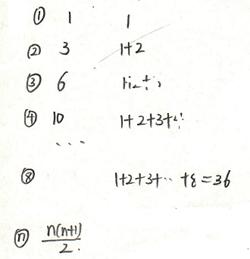 ① 1 1
② 3 1+2
③ 6
④ 10 1+2+3+4
...
⑧ 1+2+3+...+8=36
ⓝ n(n+1)/2